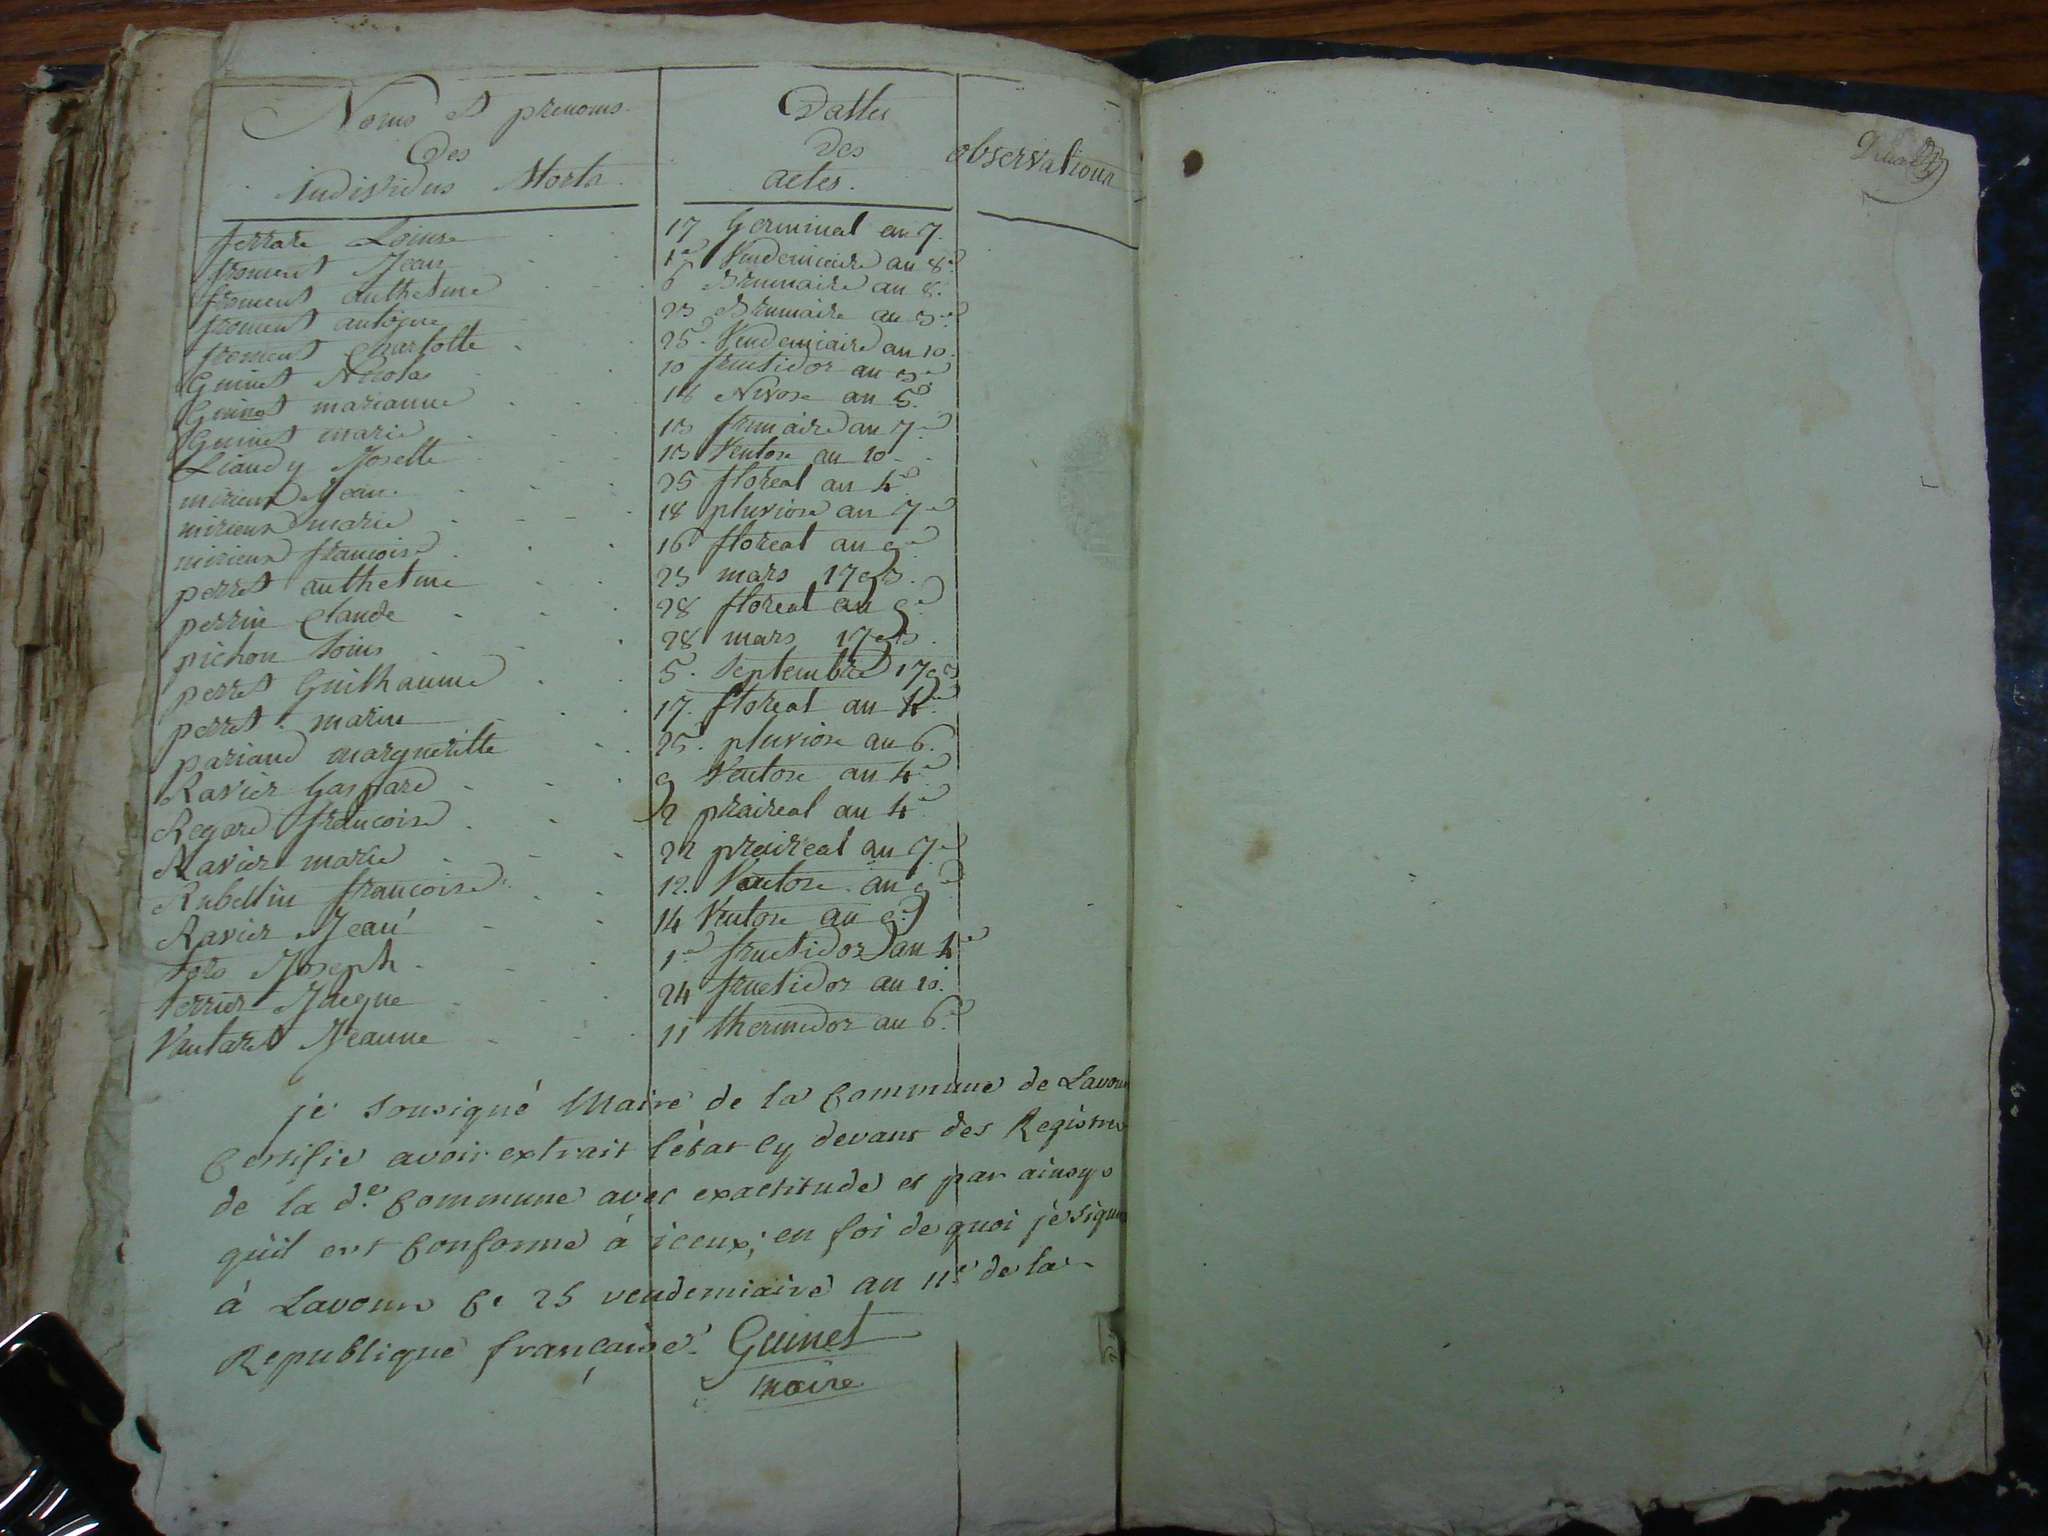 Noms et prenoms Dattes observations
Des Des
Individus Morts actes.
ferrare Louise 17 Germinal an 7.
froment Jean 1er Vendemiaire an 8e
froment anthelme 6 Brumaire an 8.
froment antoine 23 Brumaire an 9e
froment Charlotte 25. Vendemiaire an 10.
Guinet Nicolas 10 fructidor an 3e
Guinet marianne 18 Nivose an 5e
Guinet marie 13 frimaire an 7e
Liaudy Josette 13 Ventose an 10
mirieux Jean 25 floreal an 4e
mirieux marie 18 pluviose an 7e
mirieux francoise 16 floreal an 9e
perret anthelme 23 mars 1793.
perrin Claude 28 floreal an 9e
pichon Louis 28 mars 1793.
perret Guilhaume 5. Septembre 1793
perret marie 17. floreal an 4e
pariaud margueritte 25. pluviose an 6.
Ravier Gaspard 9 Ventose an 4e
Regard francoise 2 praireal an 4e
Ravier marie 22 praireal an 7e
Rubellin francoise 12. Ventose an 9e
Ravier Jean 14 Ventose an 9e
Joseph 1er fructidor an 4e
terrier Jacque 24 fructidor an 10.
Vautaret Jeanne 11 thermidor an 6e
je sousigné Maire de la Commune de Lavour
Certifie avoir extrait l'état Cy devant des Registres
de la de. Commune avec exactitude et par ainsy
qu'il est Conforme à iceux; en foi de quoi je signe
à Lavours Ce 25 vendemiaire an 11e de la
Republique française. Guinet
maire